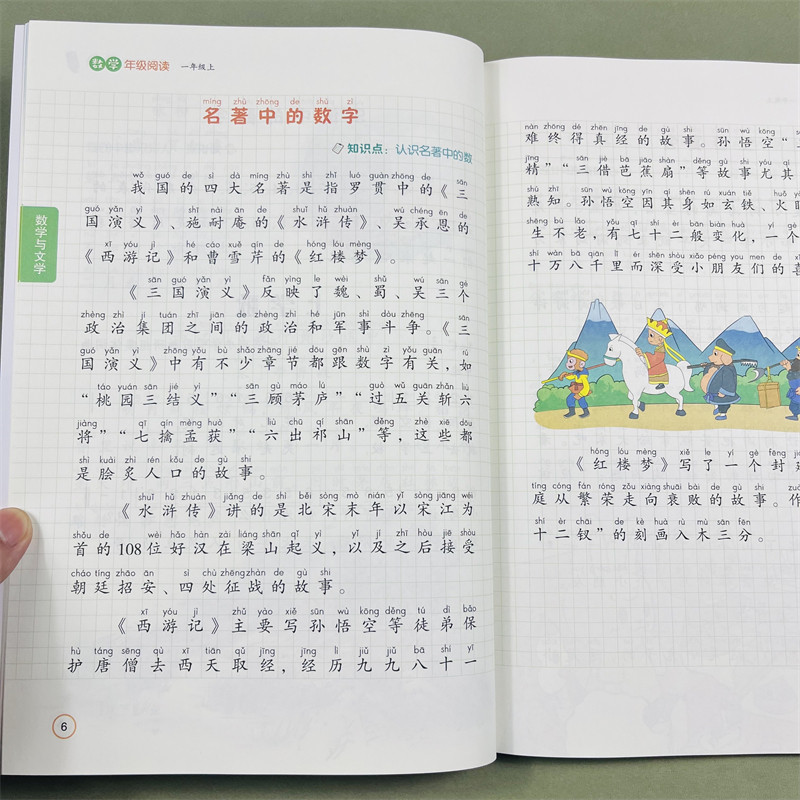 数学 年级阅读 一年级上
míng zhù zhōng de shù zì
名著中的数字
知识点：认识名著中的数
数学与文学
wǒ guó de sì dà míng zhù shì zhǐ luó guàn zhōng de sān
我国的四大名著是指罗贯中的《三
guó yǎn yì shī nài ān de shuǐ hǔ zhuàn wú chéng ēn de
国演义》、施耐庵的《水浒传》、吴承恩的
xī yóu jì hé cáo xuě qín de hóng lóu mèng
《西游记》和曹雪芹的《红楼梦》。
sān guó yǎn yì fǎn yìng le wèi shǔ wú sān gè
《三国演义》反映了魏、蜀、吴三个
zhèng zhì jí tuán zhī jiān de zhèng zhì hé jūn shì dòu zhēng sān
政治集团之间的政治和军事斗争。《三
guó yǎn yì zhōng yǒu bù shǎo zhāng jié dōu gēn shù zì yǒu guān rú
国演义》中有不少章节都跟数字有关，如
táo yuán sān jié yì sān gù máo lú guò wǔ guān zhǎn liù
“桃园三结义”“三顾茅庐”“过五关斩六
jiàng qī qín mèng huò liù chū qí shān děng zhè xiē dōu
将”“七擒孟获”“六出祁山”等，这些都
shì kuài zhì rén kǒu de gù shi
是脍炙人口的故事。
shuǐ hǔ zhuàn jiǎng de shì běi sòng mò nián yǐ sòng jiāng wéi
《水浒传》讲的是北宋末年以宋江为
shǒu de wèi hǎo hàn zài liáng shān qǐ yì yǐ jí zhī hòu jiē shòu
首的108位好汉在梁山起义，以及之后接受
cháo tíng zhāo ān sì chù zhēng zhàn de gù shi
朝廷招安、四处征战的故事。
xī yóu jì zhǔ yào xiě sūn wù kōng děng tú dì bǎo
《西游记》主要写孙悟空等徒弟保
hù táng sēng qù xī tiān qǔ jīng jīng lì jiǔ jiǔ bā shí yī
护唐僧去西天取经，经历九九八十一
6
nàn zhōng dé zhēn jīng de gù shi sūn wù kōng
难终得真经的故事。孙悟空“
jīng sān jiè bā jiāo shàn děng gù shi yóu qí
精”“三借芭蕉扇”等故事尤其
shú zhī sūn wù kōng yīn qí shēn rú xuán tiě huǒ
熟知。孙悟空因其身如玄铁、火
shēng bù lǎo yǒu qī shí èr bān biàn huà yí gè
生不老，有七十二般变化，一个
shí wàn bā qiān lǐ ér shēn shòu xiǎo péng you men de xǐ
十万八千里而深受小朋友们的喜
hóng lóu mèng xiě le yí gè fēng jiàn
《红楼梦》写了一个封建
tíng cóng fán róng zǒu xiàng shuāi bài de gù shi zuò
庭从繁荣走向衰败的故事。作
shí èr chāi de kè huà rù mù sān fēn
十二钗”的刻画入木三分。